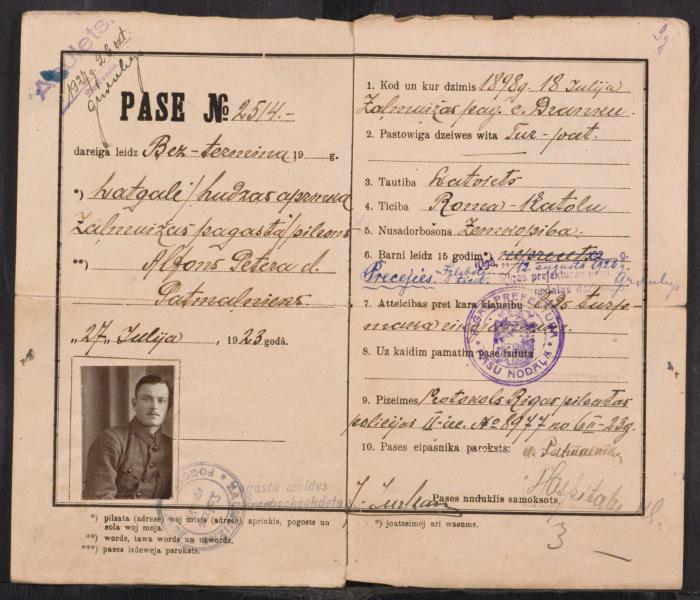 Anulets.
1927 g. 26 okt.
PASE № 2514.-
dareiga leidz Bez-termina 19 g.
*) Latgalē/Ludzas aprinka
Zaļmuižas pagastā/pilsons
**) Alfons Pētera d.
Patmalnieks
„27„ Julija , 1923. godâ.
*) pilsata (adrese) woj mists (adrese), aprinkis, pogosts un
sola woj moja.
**) words, tawa words un uzwords.
***) pases izdeweja paroksts.
1. Kod un kur dzimis 1898g. 18 Julija
Zaļmuižas pag. c.
2. Pastowiga dzeiwes wita Tur-pat.
3. Tautiba Latviets
4. Ticiba Roma-Katoļu
5. Nusadorbošona Zemkopiba.
6. Barni leidz 15 godim*) neprecets g.
Precejies.
12. augusta 1926 g.
Rigas prefekturas
7. Atteicibas pret kara klausibu 1925
RIGAS PREFEKTURA
PASU NODAĻA
8. Uz kaidim pamatim pase izduta
9. Pizeimes Protokols Rigas pilsetas
policijas II iec. № 8977 no 6/II-23g.
10. Pases eipašnika paroksts: A. Patmalnieks
Pases nuduklis samoksots.
*) joatzeimoj ari wacums.
3